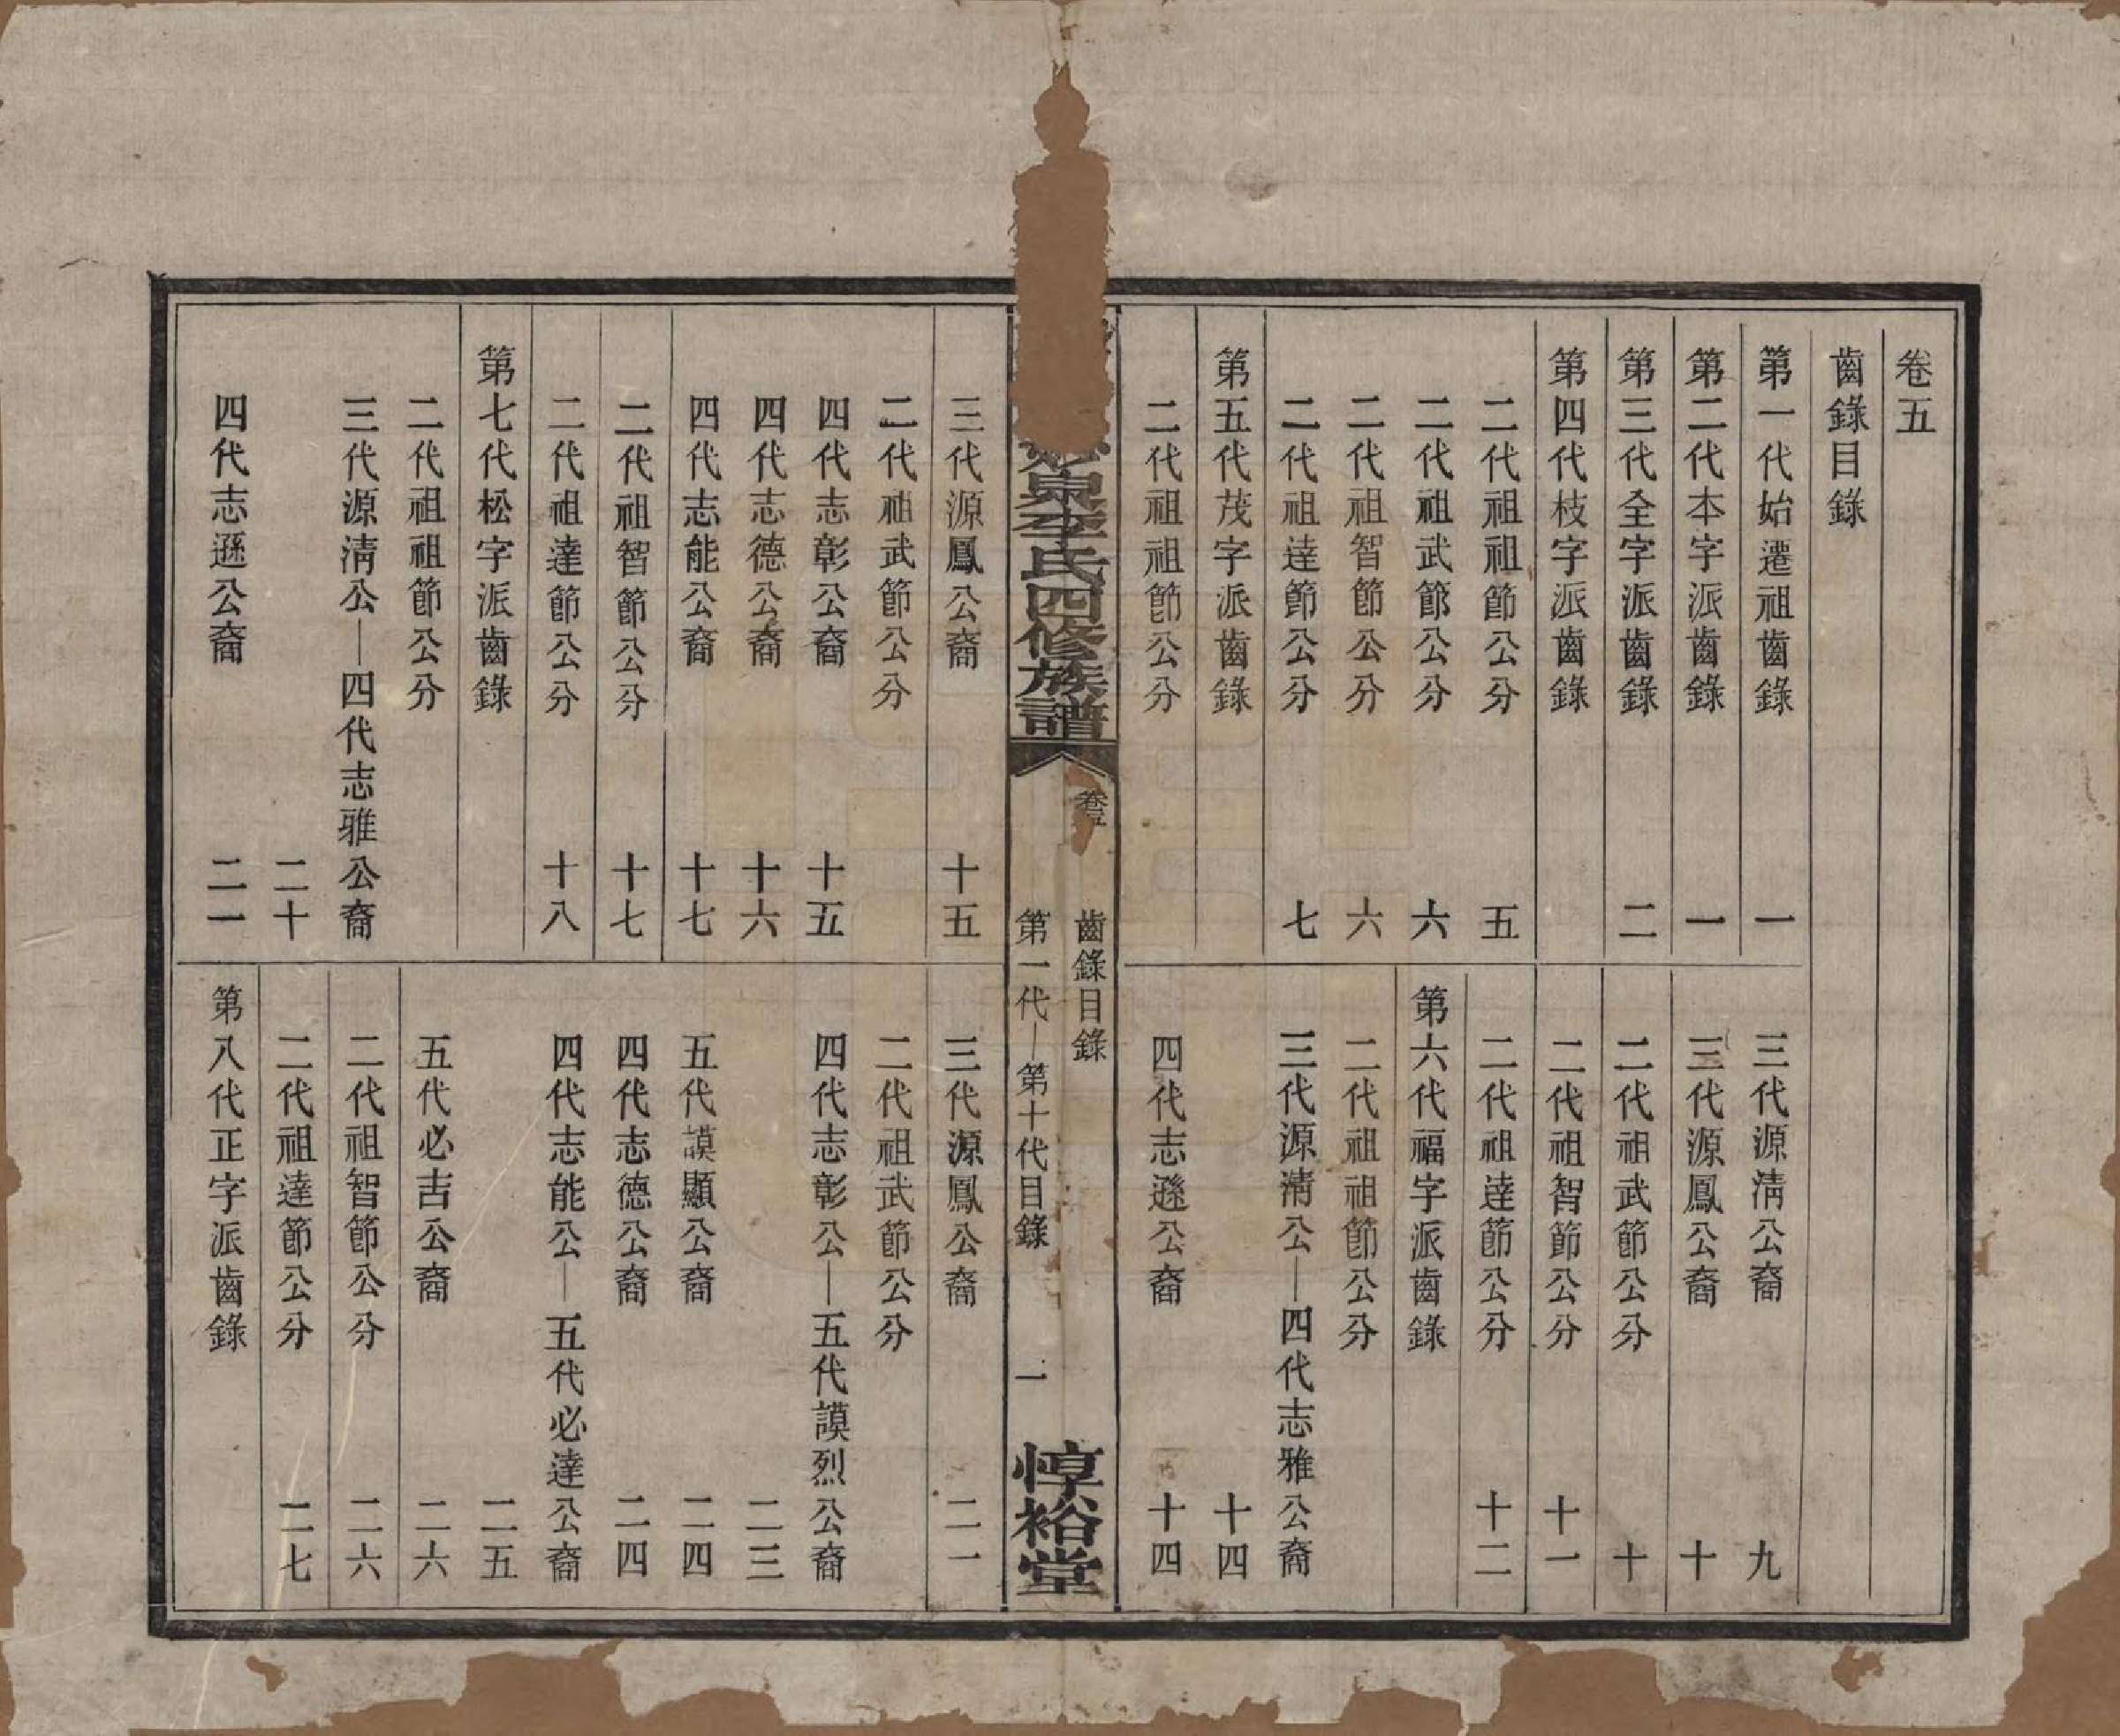 卷五
齒錄目錄
第一代始遷祖齒錄 一
第二代本字派齒錄 一
第三代全字派齒錄 二
第四代枝字派齒錄
二代祖祖節公分 五
二代祖武節公分 六
二代祖智節公分 六
二代祖達節公分 七
第五代茂字派齒錄
二代祖祖節公分
三代源淸公裔 九
三代源鳳公裔 十
二代祖武節公分 十
二代祖智節公分 十一
二代祖達節公分 十二
第六代福字派齒錄
二代祖祖節公分
三代源淸公—四代志雅公裔
十四
四代志遜公裔 十四
泉李氏四修族譜
卷五
齒錄目錄
第一代—第十代目錄
一
惇裕堂
三代源鳳公裔 十五
二代祖武節公分
四代志彰公裔 十五
四代志德公裔 十六
四代志能公裔 十七
二代祖智節公分 十七
二代祖達節公分 十八
第七代松字派齒錄
二代祖祖節公分
三代源淸公—四代志雅公裔
二十
四代志遜公裔 二一
三代源鳳公裔 二一
二代祖武節公分
四代志彰公—五代謨烈公裔
二三
五代謨顯公裔 二四
四代志德公裔 二四
四代志能公—五代必達公裔
二五
五代必吉公裔 二六
二代祖智節公分 二六
二代祖達節公分 二七
第八代正字派齒錄